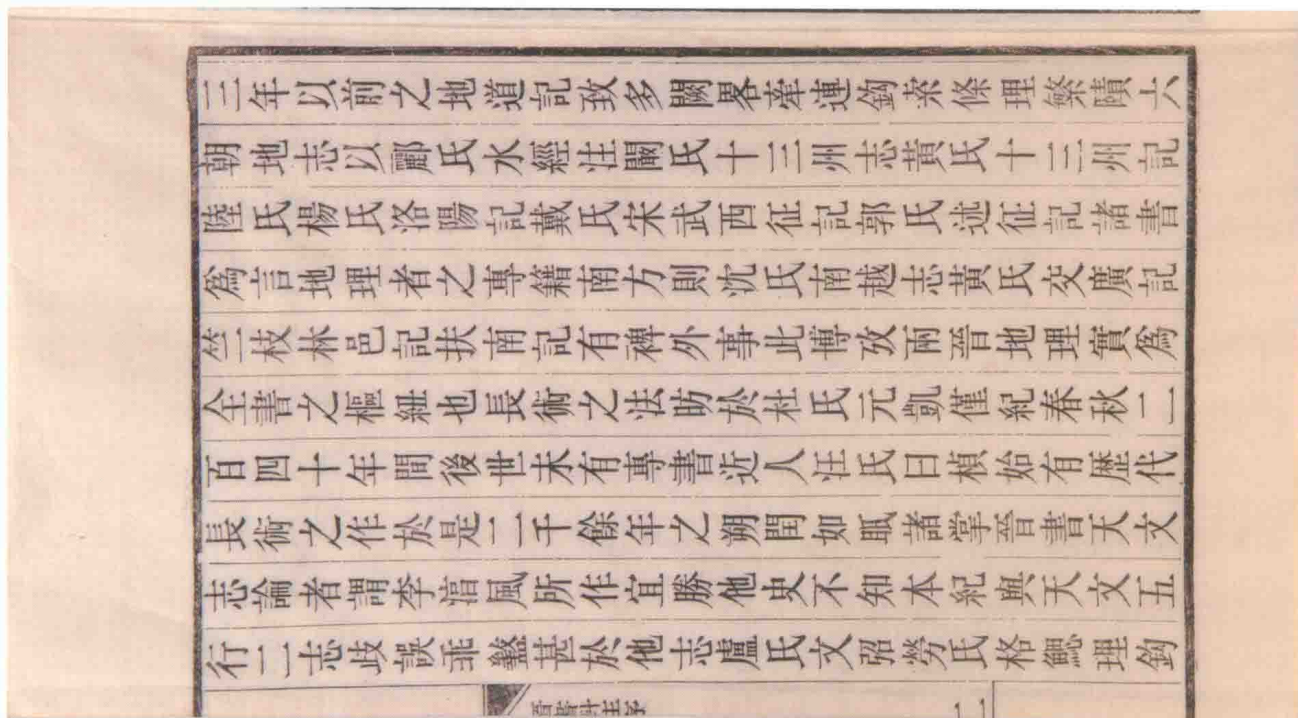 三年以前之地道記致多闕畧牽連鈎索條理繁賾六
朝地志以酈氏水經注闞氏十三州志黃氏十三州記
陸氏楊氏洛陽記戴氏宋武西征記郭氏述征記諸書
爲言地理者之專籍南方則沈氏南越志黃氏交廣記
竺枝林邑記扶南記有裨外事此博攷兩晉地理實爲
全書之樞紐也長術之法昉於杜氏元凱僅紀春秋二
百四十年間後世未有專書近人汪氏曰楨始有歷代
長術之作於是二千餘年之朔閏如眂諸掌晉書天文
志論者謂李淳風所作宜勝他史不知本紀與天文五
行二志歧誤乖盭甚於他志盧氏文弨勞氏格鰓理鈎
晉書斠注序
二